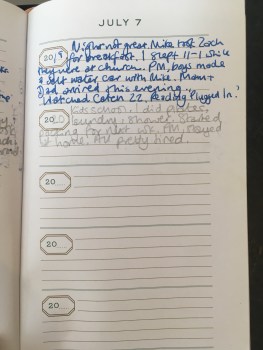 JULY 7
20/9 Night not great. Mike took Zach
for breakfast. I slept 11-1 while
they were at church. PM, boys made
a salt water car with Mike. Mom +
Dad arrived this evening.
Watched Catch 22. Reading Plugged In.
20 Kids school. I did pilates,
laundry, shower. Started
packing for next wk. PM, stayed
at home. All pretty tired.
20
20
20